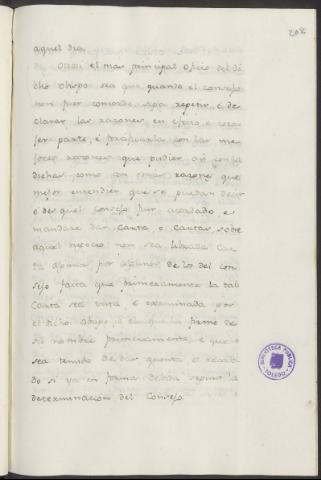 208
aquel dia
Otrosi el mas principal oficio del di
cho obispo sea que quando el consejo
non fuer concorde sepa repetir, e de
clarar las razones en efecto e
ser parte, e
jores razones que pudier, asi contra
dichas como con otras razones que
mejor entendier que se puedan decir
e des quel consejo fur acordado e
mandare dar carta, o cartas sobre
aquel negocio non sea librada car
ta alguna por algunos de los del con
sejo fasta que primeramente la tal
carta sea vista e examinada por
el dicho obispo, e el que la firme de
su nombre primeramente, e que o
sea tenudo de dar quenta, e recabi
do si va en forma debida segunt la
determinación del Consejo
BIBLIOTECA PUBLICA
TOLEDO